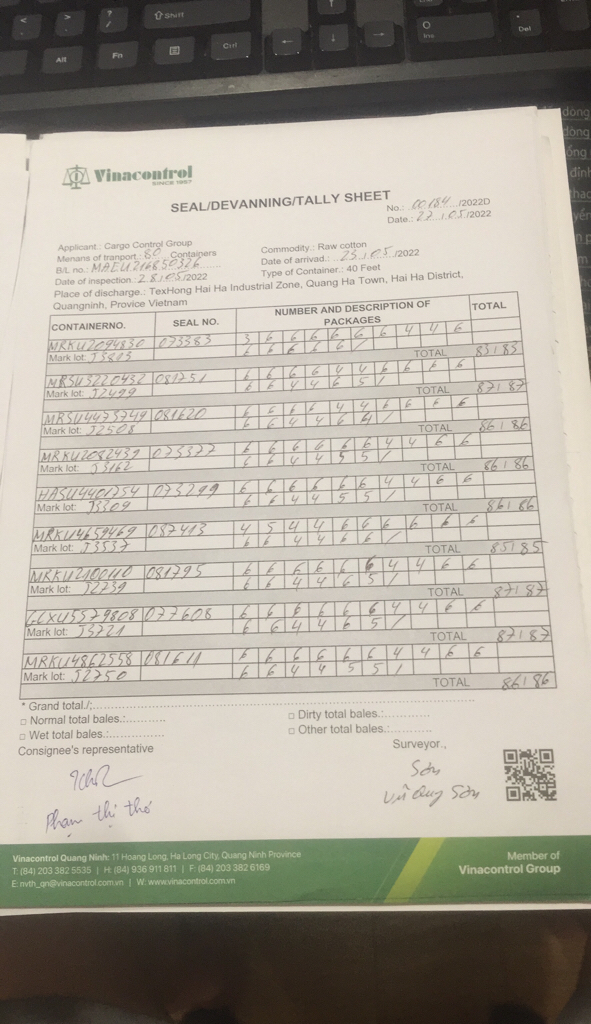 Shift
Alt
Fn
Ctrl
Ins
Del
Vinacontrol
SINCE 1957
SEAL/DEVANNING/TALLY SHEET
No.: 00184 /2022D
Date.: 27 / 05 /2022
Applicant.: Cargo Control Group
Commodity.: Raw cotton
Menans of tranport.: 80 Containers
Date of arrivad.: 25 / 05 /2022
B/L no.: MAEU216850326
Type of Container.: 40 Feet
Date of inspection.: 28/05/2022
Place of discharge.: TexHong Hai Ha Industrial Zone, Quang Ha Town, Hai Ha District,
Quangninh, Provice Vietnam
CONTAINERNO. SEAL NO. NUMBER AND DESCRIPTION OF PACKAGES TOTAL
MRKU2094830 073383 3 6 6 6 6 6 6 4 4 6
Mark lot: J3815 6 6 6 6 6 /
TOTAL 83/83
MRSU3220432 081751 6 6 6 6 4 4 6 6 6 6
Mark lot: J2499 6 6 4 4 6 5 /
TOTAL 87/87
MRSU4473749 081620 6 6 6 6 4 4 6 6 6 6
Mark lot: J2508 6 6 4 4 6 4 /
TOTAL 86/86
MRKU2082439 073377 6 6 6 6 6 6 4 4 6 6
Mark lot: J3162 6 6 4 4 5 5 /
TOTAL 86/86
HASU4401754 073299 6 6 6 6 6 6 4 4 6 6
Mark lot: J3309 6 6 4 4 5 5 /
TOTAL 86/86
MRKU4659469 087413 4 5 4 4 6 6 6 6 6 6
Mark lot: J3537 6 6 4 4 6 6 6 /
TOTAL 85/85
MRKU2100110 081795 6 6 6 6 6 6 4 4 6 6
Mark lot: J2739 6 6 4 4 6 5 /
TOTAL 87/87
GCXU5579808 077608 6 6 6 6 6 6 4 4 6 6
Mark lot: J3721 6 6 4 4 6 5 /
TOTAL 87/87
MRKU4862558 081611 6 6 6 6 6 6 4 4 6 6
Mark lot: J2750 6 6 4 4 5 5 /
TOTAL 86/86
* Grand total./;
□ Normal total bales.:
□ Dirty total bales.:
□ Wet total bales.:
□ Other total bales.:
Consignee's representative
Surveyor.,
Sơn
Phạm thị thơ
Vũ Quang Sơn
Vinacontrol Quang Ninh: 11 Hoang Long, Ha Long City, Quang Ninh Province
T: (84) 203 382 5535 | H: (84) 936 911 811 | F: (84) 203 382 6169
E: nvth_qn@vinacontrol.com.vn | W: www.vinacontrol.com.vn
Member of
Vinacontrol Group